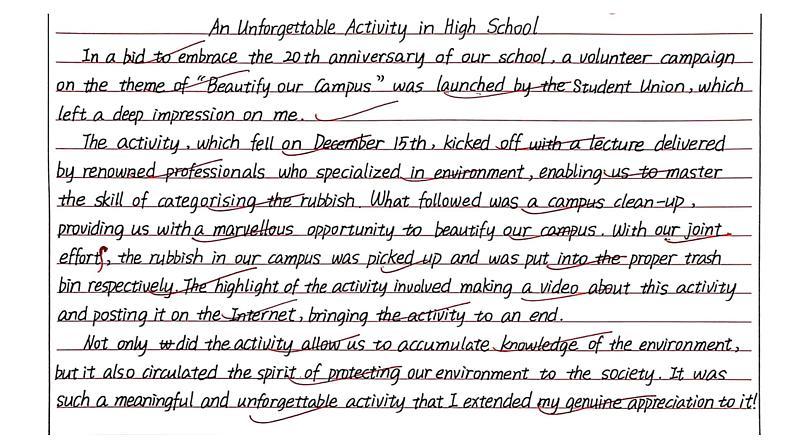 An Unforgettable Activity in High School
In a bid to embrace the 20th anniversary of our school, a volunteer campaign
on the theme of "Beautify our Campus" was launched by the Student Union, which
left a deep impression on me.
The activity, which fell on December 15th, kicked off with a lecture delivered
by renowned professionals who specialized in environment, enabling us to master
the skill of categorising the rubbish. What followed was a campus clean-up,
providing us with a marvellous opportunity to beautify our campus. With our joint
efforts, the rubbish in our campus was picked up and was put into the proper trash
bin respectively. The highlight of the activity involved making a video about this activity
and posting it on the Internet, bringing the activity to an end.
Not only did the activity allow us to accumulate knowledge of the environment,
but it also circulated the spirit of protecting our environment to the society. It was
such a meaningful and unforgettable activity that I extended my genuine appreciation to it!